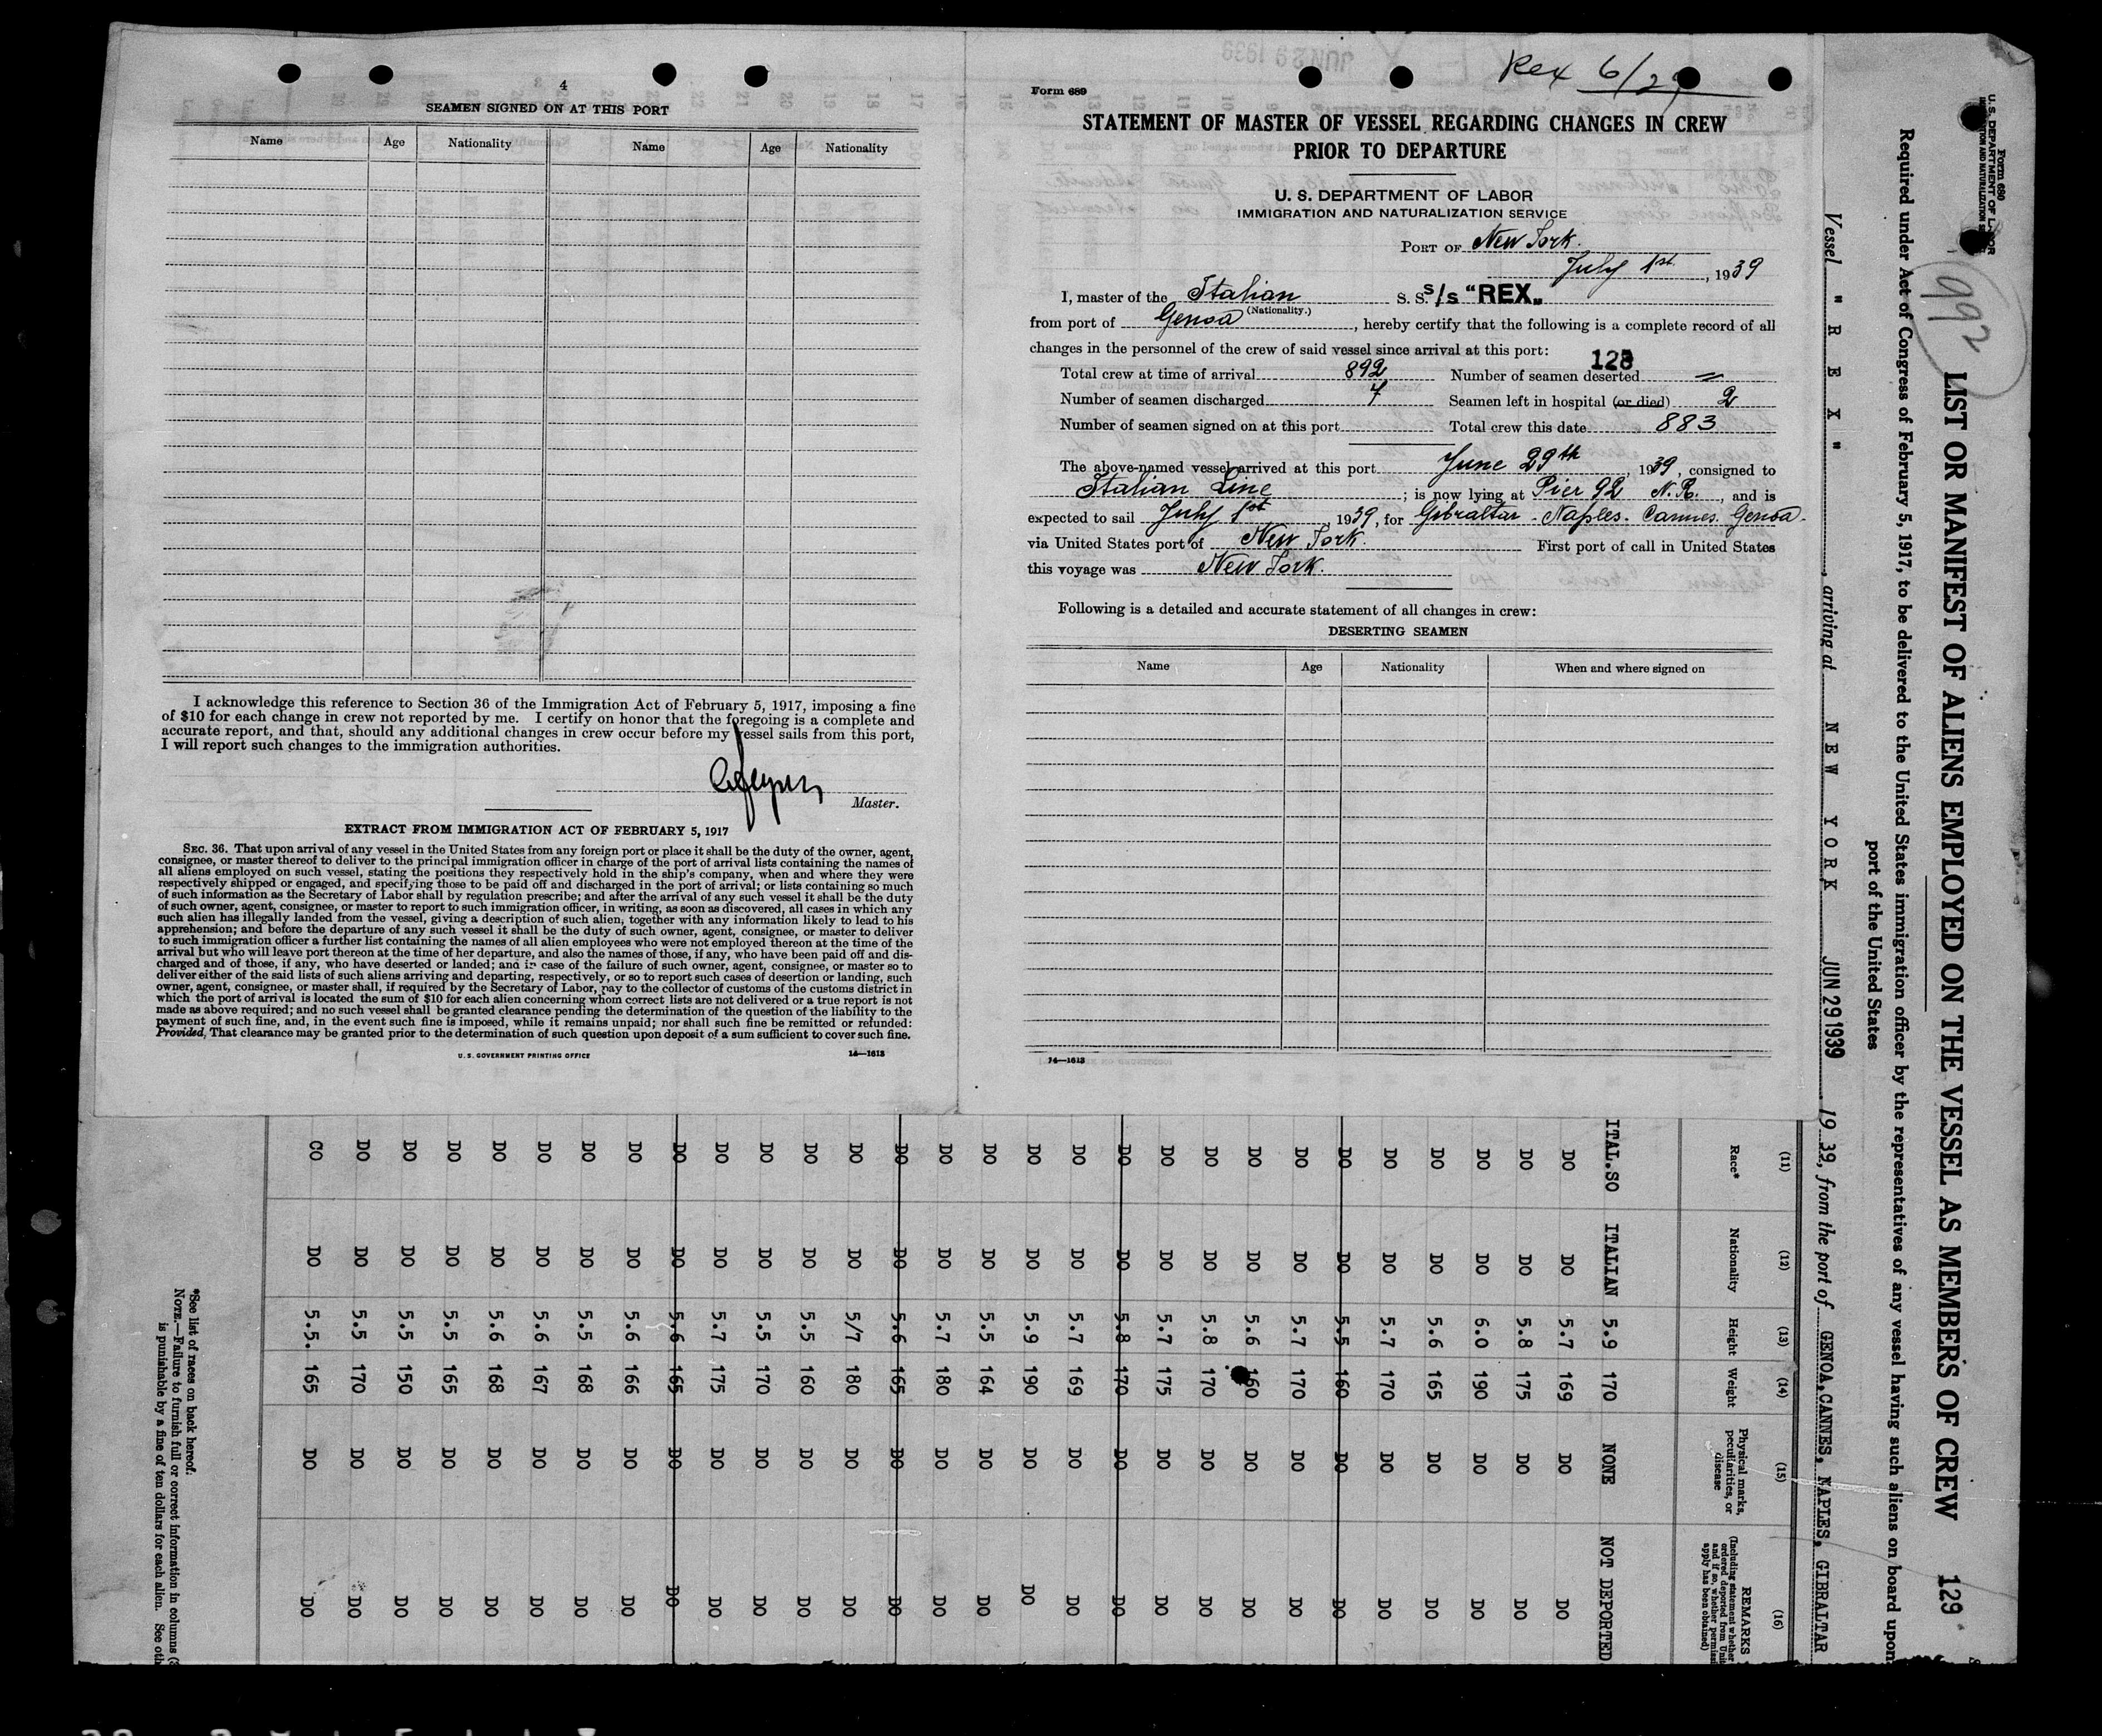 4
SEAMEN SIGNED ON AT THIS PORT
Name Age Nationality Name Age Nationality
I acknowledge this reference to Section 36 of the Immigration Act of February 5, 1917, imposing a fine
of $10 for each change in crew not reported by me. I certify on honor that the foregoing is a complete and
accurate report, and that, should any additional changes in crew occur before my vessel sails from this port,
I will report such changes to the immigration authorities.
Master.
EXTRACT FROM IMMIGRATION ACT OF FEBRUARY 5, 1917
SEC. 36. That upon arrival of any vessel in the United States from any foreign port or place it shall be the duty of the owner, agent,
consignee, or master thereof to deliver to the principal immigration officer in charge of the port of arrival lists containing the names of
all aliens employed on such vessel, stating the positions they respectively hold in the ship's company, when and where they were
respectively shipped or engaged, and specifying those to be paid off and discharged in the port of arrival; or lists containing so much
of such information as the Secretary of Labor shall by regulation prescribe; and after the arrival of any such vessel it shall be the duty
of such owner, agent, consignee, or master to report to such immigration officer, in writing, as soon as discovered, all cases in which any
such alien has illegally landed from the vessel, giving a description of such alien, together with any information likely to lead to his
apprehension; and before the departure of any such vessel it shall be the duty of such owner, agent, consignee, or master to deliver
to such immigration officer a further list containing the names of all alien employees who were not employed thereon at the time of the
arrival but who will leave port thereon at the time of her departure, and also the names of those, if any, who have been paid off and dis-
charged and of those, if any, who have deserted or landed; and in case of the failure of such owner, agent, consignee, or master so to
deliver either of the said lists of such aliens arriving and departing, respectively, or so to report such cases of desertion or landing, such
owner, agent, consignee, or master shall, if required by the Secretary of Labor, pay to the collector of customs of the customs district in
which the port of arrival is located the sum of $10 for each alien concerning whom correct lists are not delivered or a true report is not
made as above required; and no such vessel shall be granted clearance pending the determination of the question of the liability to the
payment of such fine, and, in the event such fine is imposed, while it remains unpaid; nor shall such fine be remitted or refunded:
Provided, That clearance may be granted prior to the determination of such question upon deposit of a sum sufficient to cover such fine.
U. S. GOVERNMENT PRINTING OFFICE 14—1613
Rex 6/29
Form 689
STATEMENT OF MASTER OF VESSEL REGARDING CHANGES IN CREW
PRIOR TO DEPARTURE
U. S. DEPARTMENT OF LABOR
IMMIGRATION AND NATURALIZATION SERVICE
PORT OF New York.
July 1st, 1939
I, master of the Italian S. S. S/s "REX"
(Nationality.)
from port of Genoa, hereby certify that the following is a complete record of all
changes in the personnel of the crew of said vessel since arrival at this port:
Total crew at time of arrival 892 Number of seamen deserted =
Number of seamen discharged 7 Seamen left in hospital (or died) 2
Number of seamen signed on at this port Total crew this date 883
The above-named vessel arrived at this port June 29th, 1939, consigned to
Italian Line; is now lying at Pier 92 N.R., and is
expected to sail July 1st 1939, for Gibraltar - Naples. Cannes. Genoa-
via United States port of New York. First port of call in United States
this voyage was New York.
Following is a detailed and accurate statement of all changes in crew:
DESERTING SEAMEN
Name Age Nationality When and where signed on
14—1613
Form 680
U. S. DEPARTMENT OF LABOR
992
LIST OR MANIFEST OF ALIENS EMPLOYED ON THE VESSEL AS MEMBERS OF CREW 129
Required under Act of Congress of February 5, 1917, to be delivered to the United States immigration officer by the representatives of any vessel having such aliens on board upon
port of the United States
Vessel "REX", arriving at NEW YORK JUN 29 1939 1939, from the port of GENOA, CANNES, NAPLES, GIBRALTAR
(11) (12) (13) (14) (15) (16)
Race* Nationality Height Weight Physical marks, peculiarities, or disease REMARKS
ITAL.SO ITALIAN 5.9 170 NONE NOT DEPORTED
DO DO 5.7 169 DO DO
DO DO 5.8 175 DO DO
DO DO 6.0 190 DO DO
DO DO 5.6 165 DO DO
DO DO 5.7 170 DO DO
DO DO 5.5 160 DO DO
DO DO 5.7 170 DO DO
DO DO 5.6 160 DO DO
DO DO 5.8 170 DO DO
DO DO 5.7 175 DO DO
DO DO 5.8 170 DO DO
DO DO 5.7 169 DO DO
DO DO 5.9 190 DO DO
DO DO 5.5 164 DO DO
DO DO 5.7 180 DO DO
DO DO 5.6 165 DO DO
DO DO 5/7 180 DO DO
DO DO 5.5 160 DO DO
DO DO 5.5 170 DO DO
DO DO 5.7 175 DO DO
DO DO 5.6 165 DO DO
DO DO 5.6 166 DO DO
DO DO 5.5 168 DO DO
DO DO 5.6 167 DO DO
DO DO 5.6 168 DO DO
DO DO 5.5 165 DO DO
DO DO 5.5 150 DO DO
DO DO 5.5 170 DO DO
CO DO 5.5. 165 DO DO
*See list of races on back hereof.
NOTE.—Failure to furnish full or correct information in columns
is punishable by a fine of ten dollars for each alien. See